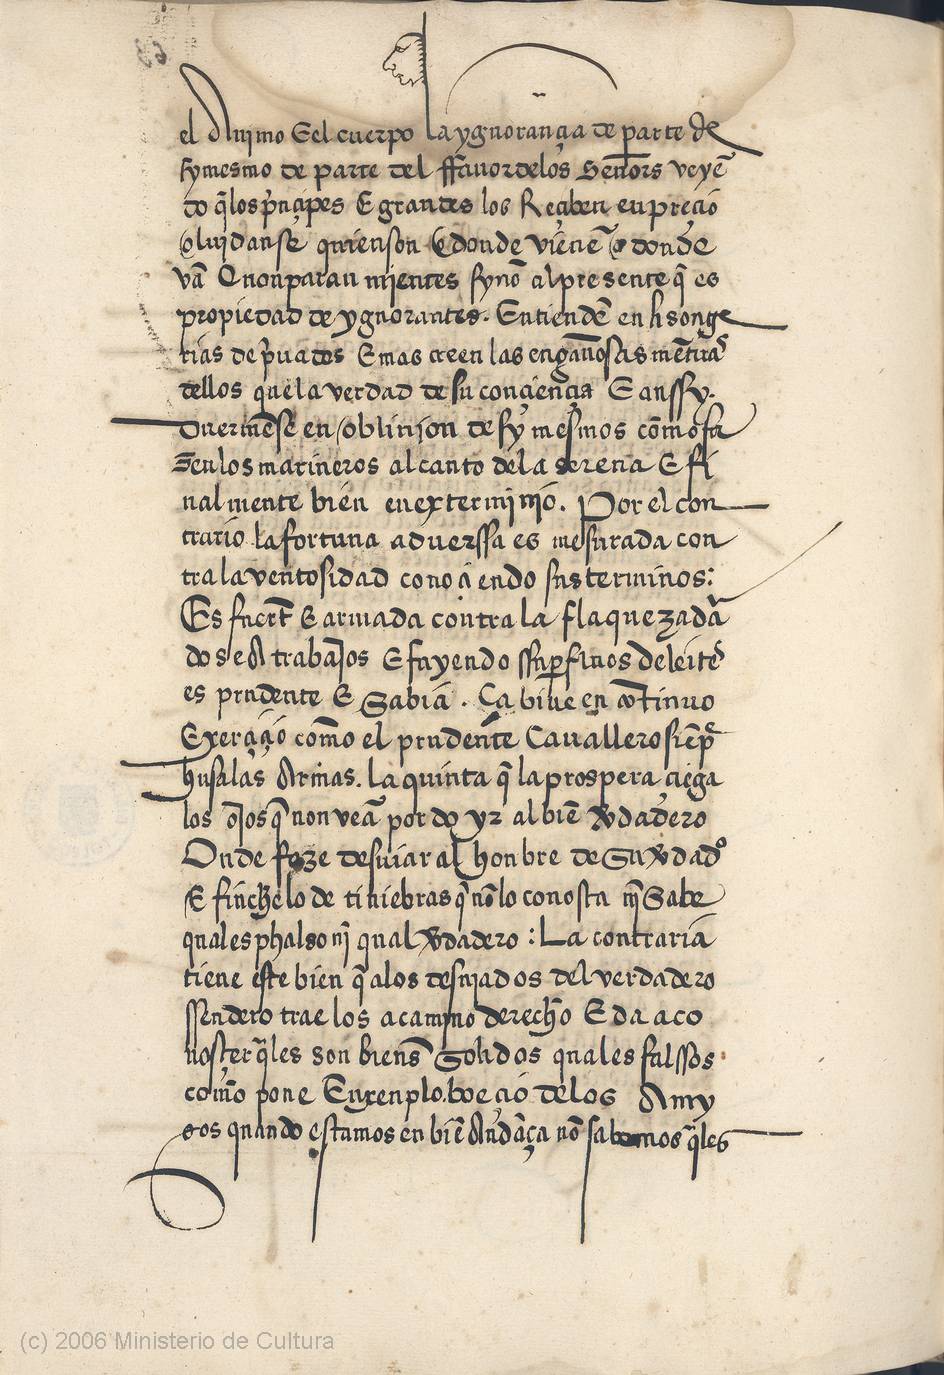 el Animo E el cuerpo la ygnorançia de parte de
sy mesmo de parte del ffauor delos Señors veyẽ
do q̃ los prĩçipes E grandes los Resçiben en preçio
oluidanse quien son E donde vienẽ o donde
vã E non paran mientes synõ al presente q̃ es
propiedad de ygnorantes. Entiendẽ en lisonge
rias de priuados E mas creen las engañosas mẽtiras
dellos que la verdad de su conçiençia E anssy.
duermẽse en obliuion de sy mesmos com̃o fa
zen los marineros al canto dela serena E fi
nal mente bien en exterminio. Por el con
trario la fortuna aduerssa es mesurada con
tra la ventosidad conoçiendo sus terminos:
Es fuert̃ E armada contra la flaqueza dã
dose A trabajos E fuyendo ssuꝑfluos deleites
es prudente E Sabia. Ca biue en cõtinuo
Exerçiçio com̃o el prudente Cauallero siẽpre
husa las Armas. la quinta q̃ la prospera çiega
los ojos q̃ non veã por do yr al biẽ ṽdadero
Onde faze desuiar al honbre de Su ṽdad
E finchelo de tiniebras q̃ nõ lo conosca nj̃ Sabe
qual es phalso nj̃ qual ṽdadero: La contraria
tiene este bien q̃ alos desuiados del verdadero
ssendero trae los a camino derecho E da a co
nosçer q̃les son bienẽs Solidos quales falssos
com̃o pone Enxenplo. boeçio delos Amy
gos quando estamos en biẽ Andãça nõ sabemos q̃les
(c) 2006 Ministerio de Cultura